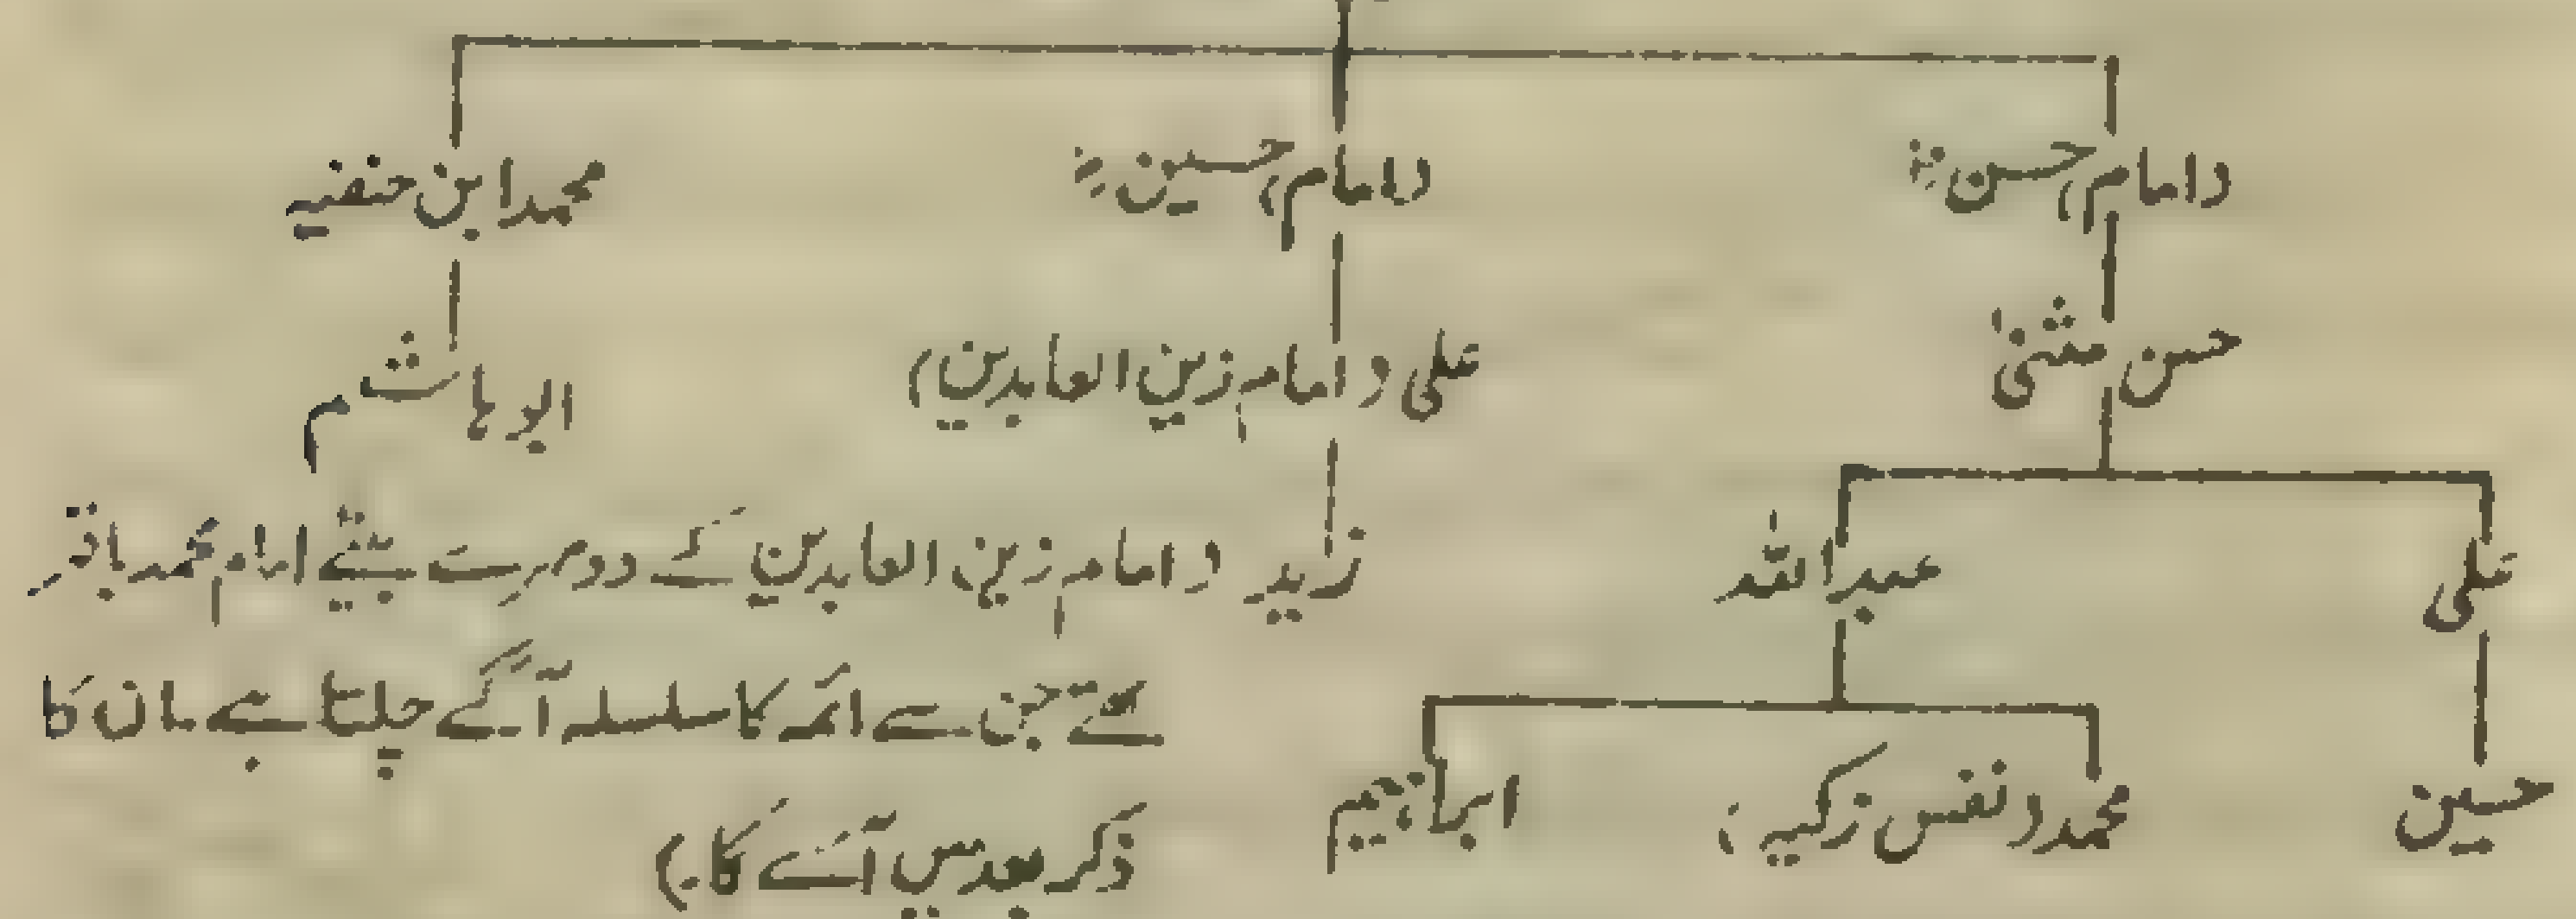 (امام) حسنؓ (امام) حسینؓ محمد ابن حنفیہ
حسن مثنیٰ علی (امام زین العابدین) ابوہاشم
علی عبداللہ زید (امام زین العابدین کے دوسرے بیٹے امام محمد باقر
تھے جن سے ائمہ کا سلسلہ آگے چلتا ہے۔ ان کا
حسین محمد (نفس زکیہ) ابراہیم ذکر بعد میں آئے گا۔)